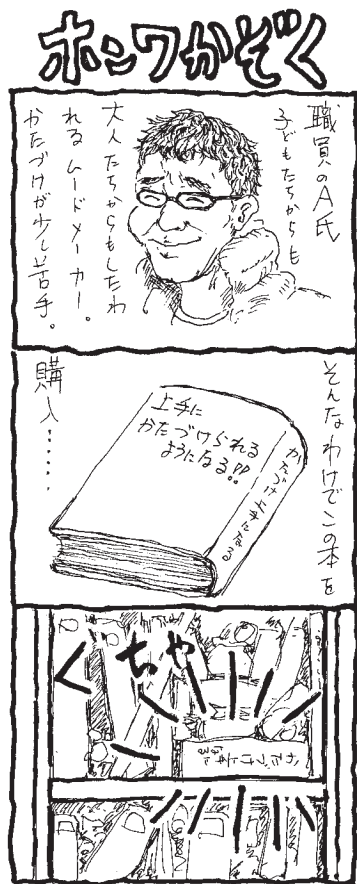 ホンワかぞく
職員のA氏
子どもたちからも
大人たちからもしたわ
れるムードメーカー。
かたづけが少し苦手。
そんなわけでこの本を
購入……
上手に
かたづけられる
ようになる!!
かたづけ上手になる
ちゃく